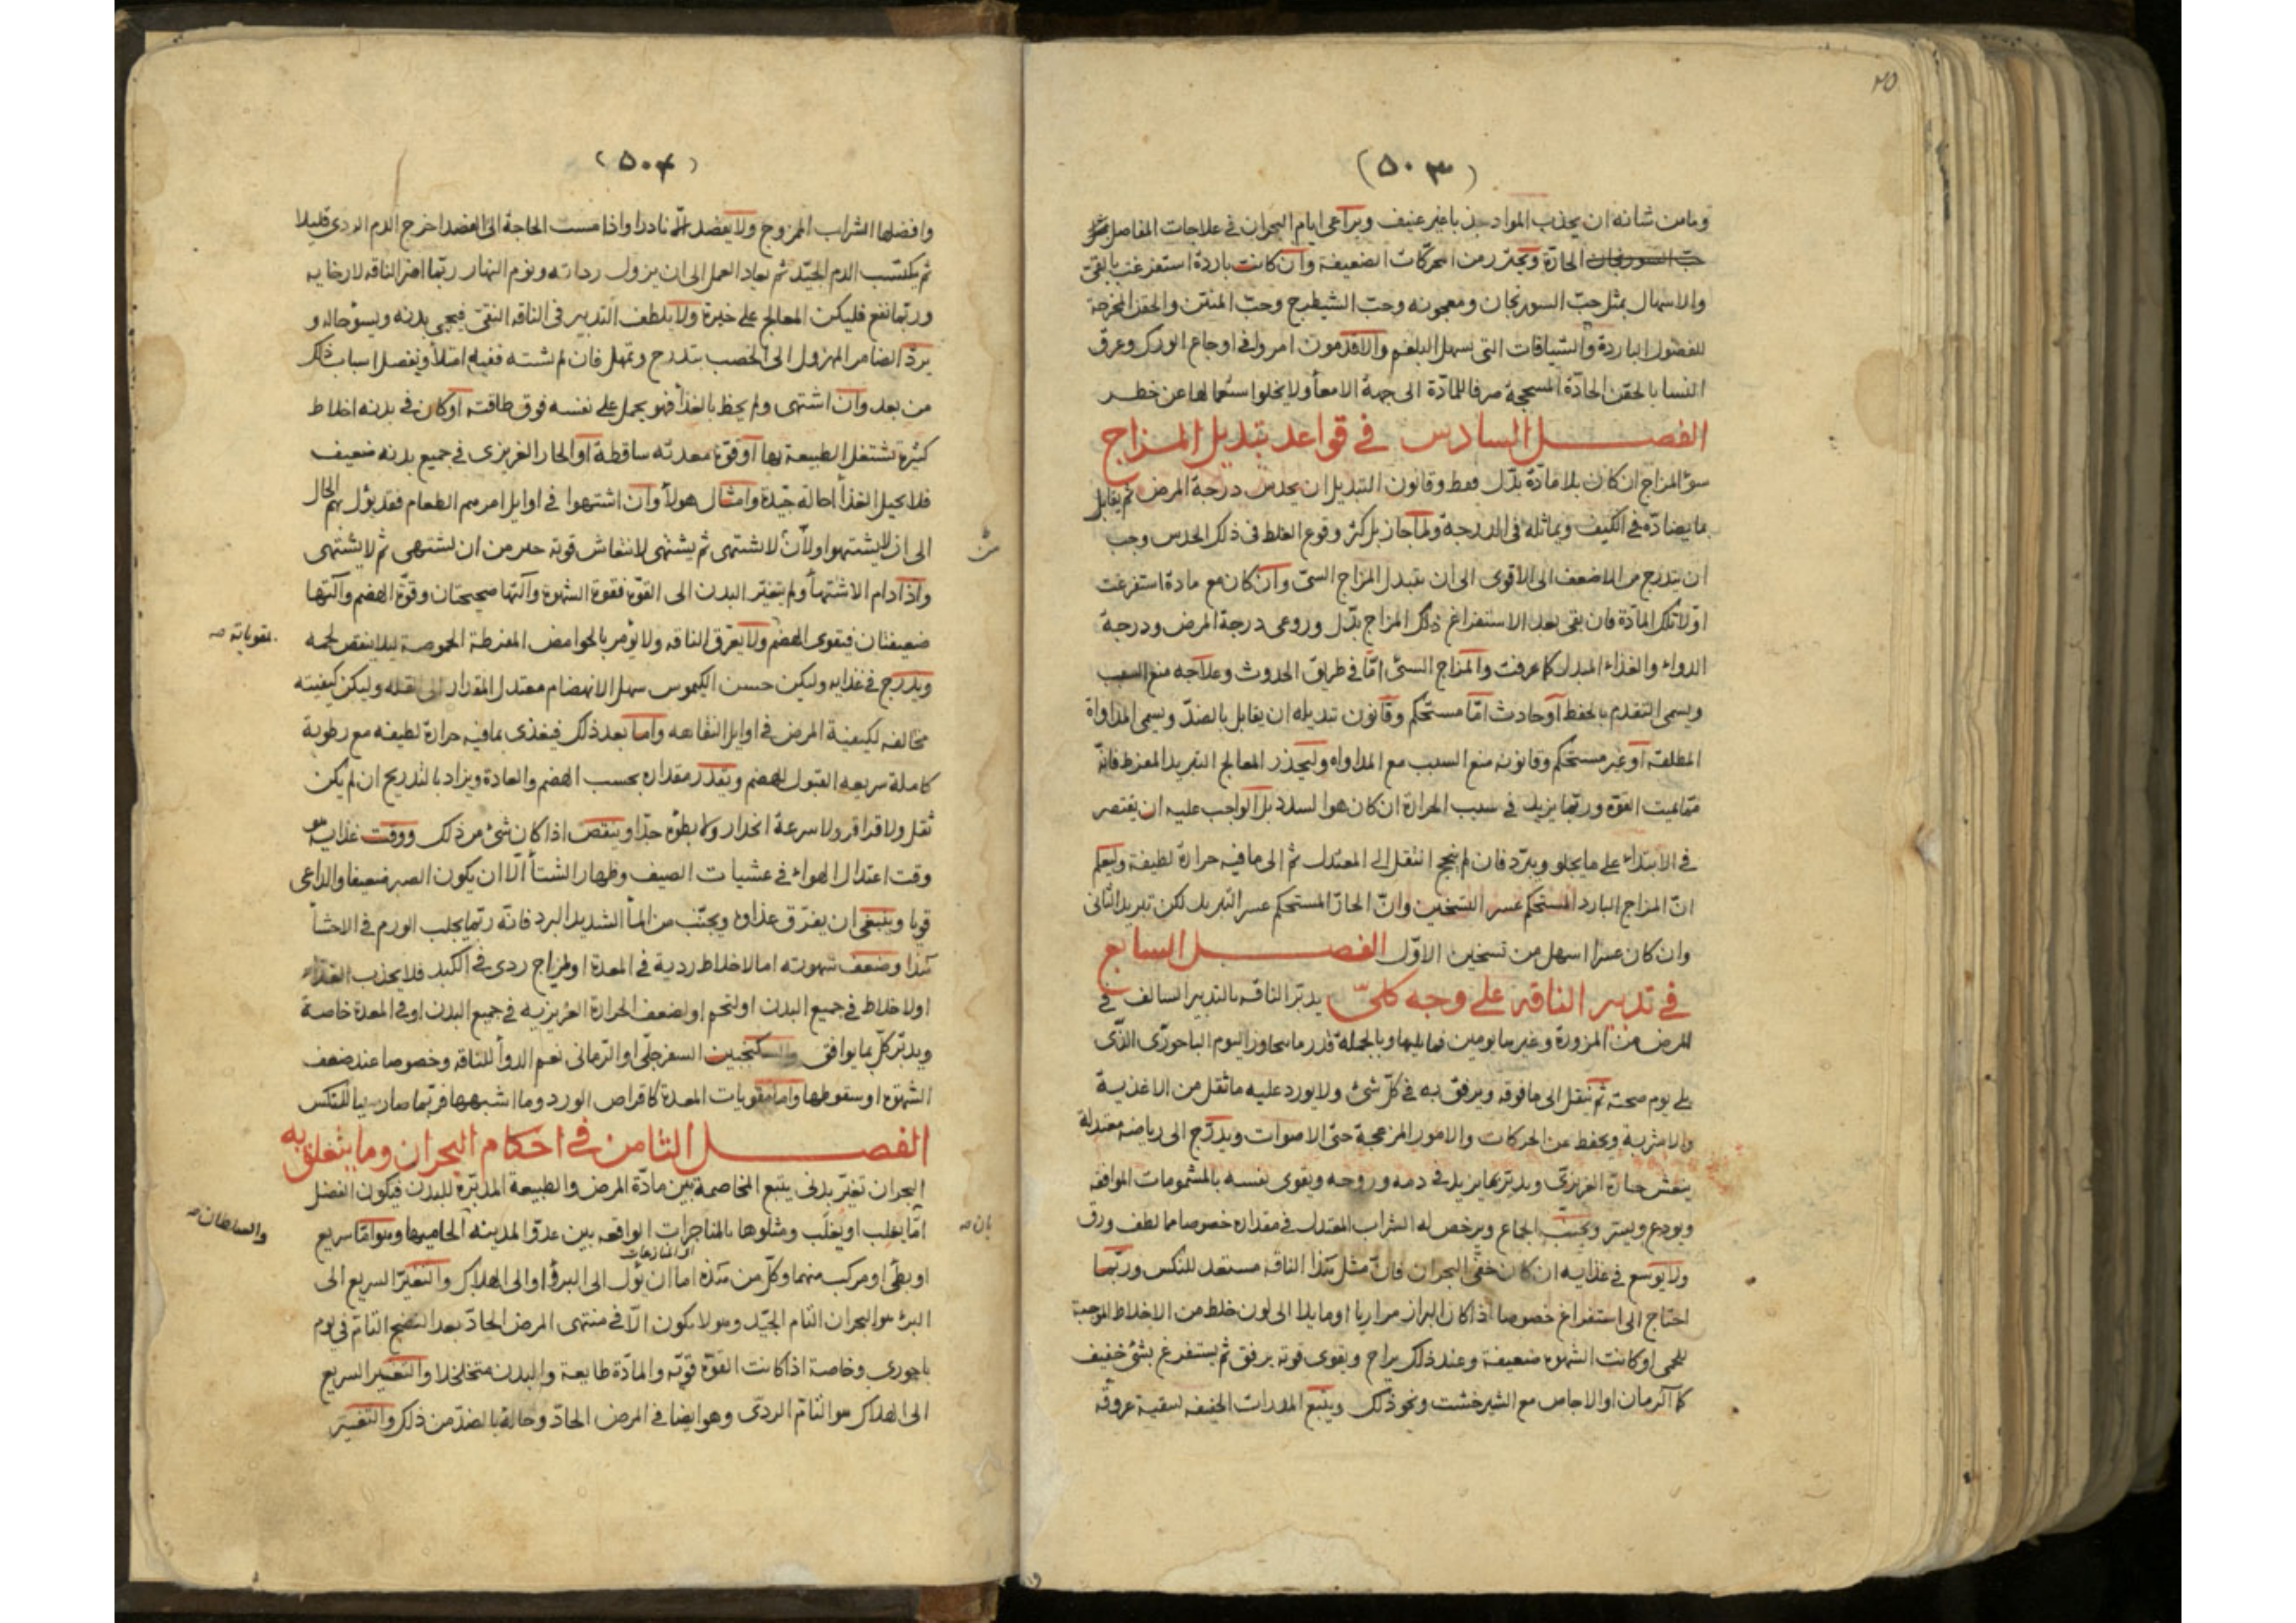 (٥٠٣)
وما من شانه ان يجذب المواد جذبا غير عنيف ويراعى ايام البحران فى علاجات المفاصل
الحارة ويحترز من المحركات الضعيفة وان كانت باردة استفرغت بالقئ
والاسهال بمثل حبّ السورنجان ومعجونه وحبّ الشيطرج وحبّ المنتن والحقن المخرجة
للفضول الباردة والشيافات التى تسهل البلغم والاقدمون امروا فى اوجاع الورك وعرق
النسا بالحقن الحادّة المسحجة صرفا للمادّة الى جهة الامعأ ولا يخلوا استعمالها عن خطر
الفصل السادس فى قواعد تبديل المزاج
سوء المزاج ان كان بلا مادّة بدّل فقط وقانون التبديل ان يحدس درجة المرض ثم يقابل
بما يضادّه فى الكيف ويماثله فى الدرجة ولما جاز بل كثر وقوع الغلط فى ذلك الحدس وجب
ان يتدرج من الاضعف الى الاقوى الى ان يتبدل المزاج السئ وان كان مع مادة استفرغت
اوّلا تلك المادّة فان بقى بعد الاستفراغ ذلك المزاج بدّل وروعى درجة المرض ودرجة
الدواء والغذاء المبدل كما عرفت والمزاج السئ امّا فى طريق الحدوث وعلاجه منع السبب
ويسمى التقدم بالحفظ او حادث امّا مستحكم وقانون تبديله ان يقابل بالضدّ ويسمى المداواة
المطلقة او غير مستحكم وقانونه منع السبب مع المداواه وليحذر المعالج التبريد المفرط فانّه
مما يميت القوّة وربّما يزيد فى سبب الحرارة ان كان هو السدد بل الواجب عليه ان يقتصر
فى الابتداء على ما يجلو ويبرّد فان لم ينجح انتقل الى المعتدل ثم الى ما فيه حرارة لطيفة وليعلم
انّ المزاج البارد المستحكم عسر التسخين وانّ الحارّ المستحكم عسر التبريد لكن تبريد الثانى
وان كان عسرا اسهل من تسخين الاوّل الفصل السابع
فى تدبير الناقه على وجه كلىّ يدبّر الناقه بالتدبير السالف فى
المرض من المزورة وغيرها يومين فما يليها وبالجملة قدر ما يجاوز اليوم الباحورى الذى
يلى يوم صحته ثم ينقل الى ما فوقه ويرفق به فى كلّ شئ ولا يورد عليه ما ثقل من الاغذية
والاشربة ويحفظ عن الحركات والامور المزعجة حتّى الاصوات ويدرّج الى رياضة معتدلة
ينعش حارّه الغريزىّ ويدبّر بما يزيد فى دمه وروحه ويقوى نفسه بالمشمومات الموافقه
ويودع ويسر ويجنب الجماع ويرخص له الشراب المعتدل فى مقداره خصوصا مما لطف ورق
ولا يوسع فى غذايه ان كان خفىّ البحران فانّ مثل هذا الناقه مستعد للنكس وربّما
احتاج الى استفراغ خصوصا اذا كان البراز مراريا او مايلا الى لون خلط من الاخلاط الموجبة
للحمى او كانت الشهوه ضعيفة وعند ذلك يراح ويقوى قوته برفق ثم يستفرغ بشئ خفيف
كماء الرمان او الاجاص مع الشيرخشت ونحو ذلك ويتبع المدرات الخفيفه لتنقية عروقه
(٥٠٤)
وافضلها الشراب الممزوج ولا يفصد الّا نادرا واذا مست الحاجة الى الفصد اخرج الدم الردى قليلا
ثم يكتسب الدم الجيّد ثم يعاد العمل الى ان يزول رداته ونوم النهار ربّما اضر الناقه لارخايه
وربّما نفع فليكن المعالج على خبرة ولا يلطف التدبير فى الناقه النقى فيحمى بدنه ويسؤ حاله و
يردّ الضامر المهزول الى الخصب بتدرج وتمهل فان لم يشته ففيه امتلأ ونفصل اسباب ذلك
من بعد وان اشتهى ولم يحظ بالغذأ فهو يحمل على نفسه فوق طاقته او كان فى بدنه اخلاط
كثيرة تشتغل الطبيعة بها او قوّة معدته ساقطة او الحار الغريزى فى جميع بدنه ضعيف
فلا يحيل الغذأ احالة جيّدة وامثال هولأ وان اشتهوا فى اوايل امرهم الطعام فقد يؤل بهم الحال
الى ان لا يشتهوا ولأن لا يشتهى ثم يشتهى لانتعاش قوته خير من ان يشتهى ثم لا يشتهى
واذا دام الاشتهأ ولم يتغيّر البدن الى القوّة فقوة الشهوة وآلتها صحيحتان وقوّة الهضم وآلتها
ضعيفتان فيقوى الهضم ولا يعرق الناقه ولا يؤمر بالحوامض المفرطة الحموصة ليلا ينقص لحمه
ويدرج فى غذايه وليكن حسن الكيموس سهل الانهضام معتدل المقدار الى القله وليكن كيفيته
مخالفه لكيفية المرض فى اوايل النقاهه واما بعد ذلك فيغذى بما فيه حرارة لطيفه مع رطوبة
كاملة سريعه القبول للهضم ويقدر مقداره بحسب الهضم والعادة ويزاد بالتدريج ان لم يكن
ثقل ولا قراقر ولا سرعة انحدار ولا بطؤه جدّا وينقص اذا كان شئ من ذلك ووقت غذايه هو
وقت اعتدال الهواء فى عشيات الصيف وظهار الشتأ الّا ان يكون الصبر ضعيفا والداعى
قويا وينبغى ان يفرّق غذاوه ويجنّب من المأ الشديد البرد فانّه ربّما يجلب الورم فى الاحشأ
هذا وضعف شهوته اما لاخلاط ردية فى المعدة او لمزاج ردى فى الكبد فلا يجذب الغذاء
او لاخلاط فى جميع البدن او لتخم او لضعف الحرارة الغريزيه فى جميع البدن او فى المعدة خاصة
ويدبّر كلّ بما يوافق والسكنجبين السفرجلى او الرّمانى نعم الدوأ للناقه وخصوصا عند ضعف
الشهوة او سقوطها واما مقويات المعدة كاقراص الورد وما اشبهها فربّما صار سببا للنكس
الفصل الثامن فى احكام البحران وما يتعلق به
البحران تغيّر بدنى يتبع المخاصمة بين مادّة المرض والطبيعة المدبّرة للبدن فيكون الفضل
امّا يغلب او يُغلَب ومثلوها بالمناجزات الواقعه بين عدوّ المدينه الحاميها وهو امّا سريع
او المنازعات
او بطئ او مركب منهما وكلّ من هذه اما ان يؤل الى البرؤ او الى الهلاك والتغيّر السريع الى
البرء هو البحران التام الجيّد وهو لا يكون الّا فى منتهى المرض الحادّ بعد النضج التام فى يوم
باحورى وخاصة اذا كانت القوّة قويّه والمادّة طايعة والبدن متخلخلا والتغيير السريع
الى الهلاك هو التام الردى وهو ايضا فى المرض الحادّ وحاله بالضدّ من ذلك والتغيّر
والسلطان صح